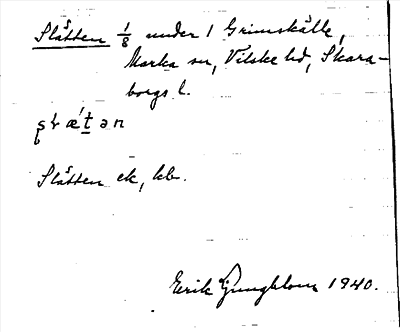 Slätten 1/8 under 1 Grimskälle,
Marka sn, Vilske hd, Skara-
borgs l.
Slätten ek, kb.
Erik Ljungblom 1940.